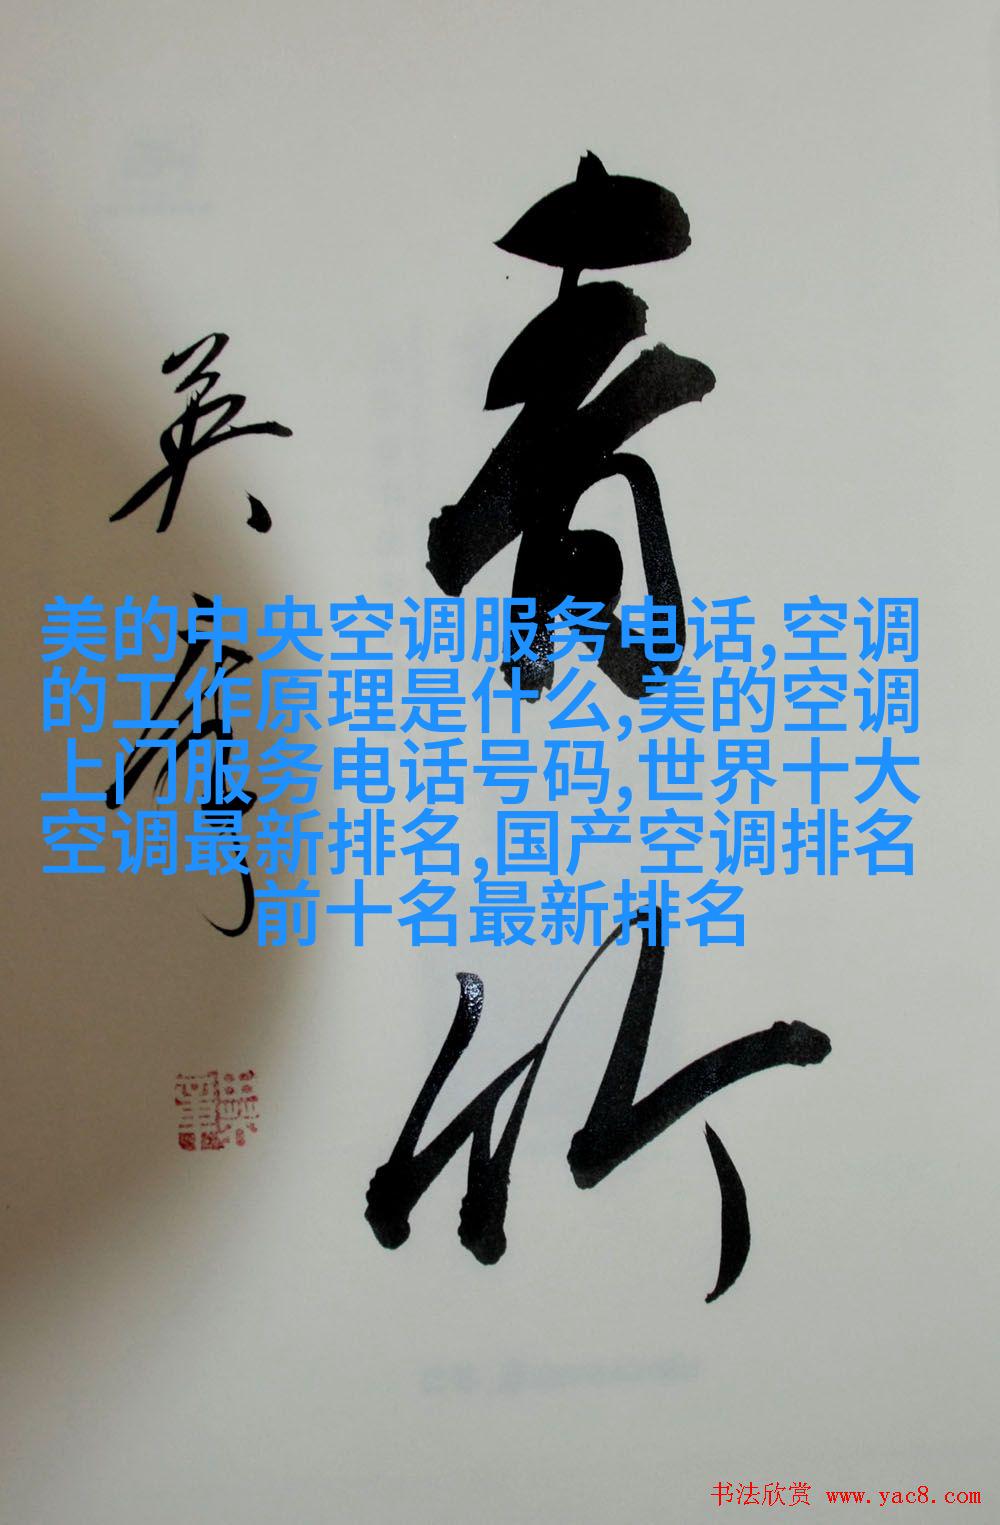 青竹
英
美的中央空调服务电话,空调
的工作原理是什么,美的空调
上门服务电话号码,世界十大
空调最新排名,国产空调排名
前十名最新排名
书法欣赏 www.yac8.com